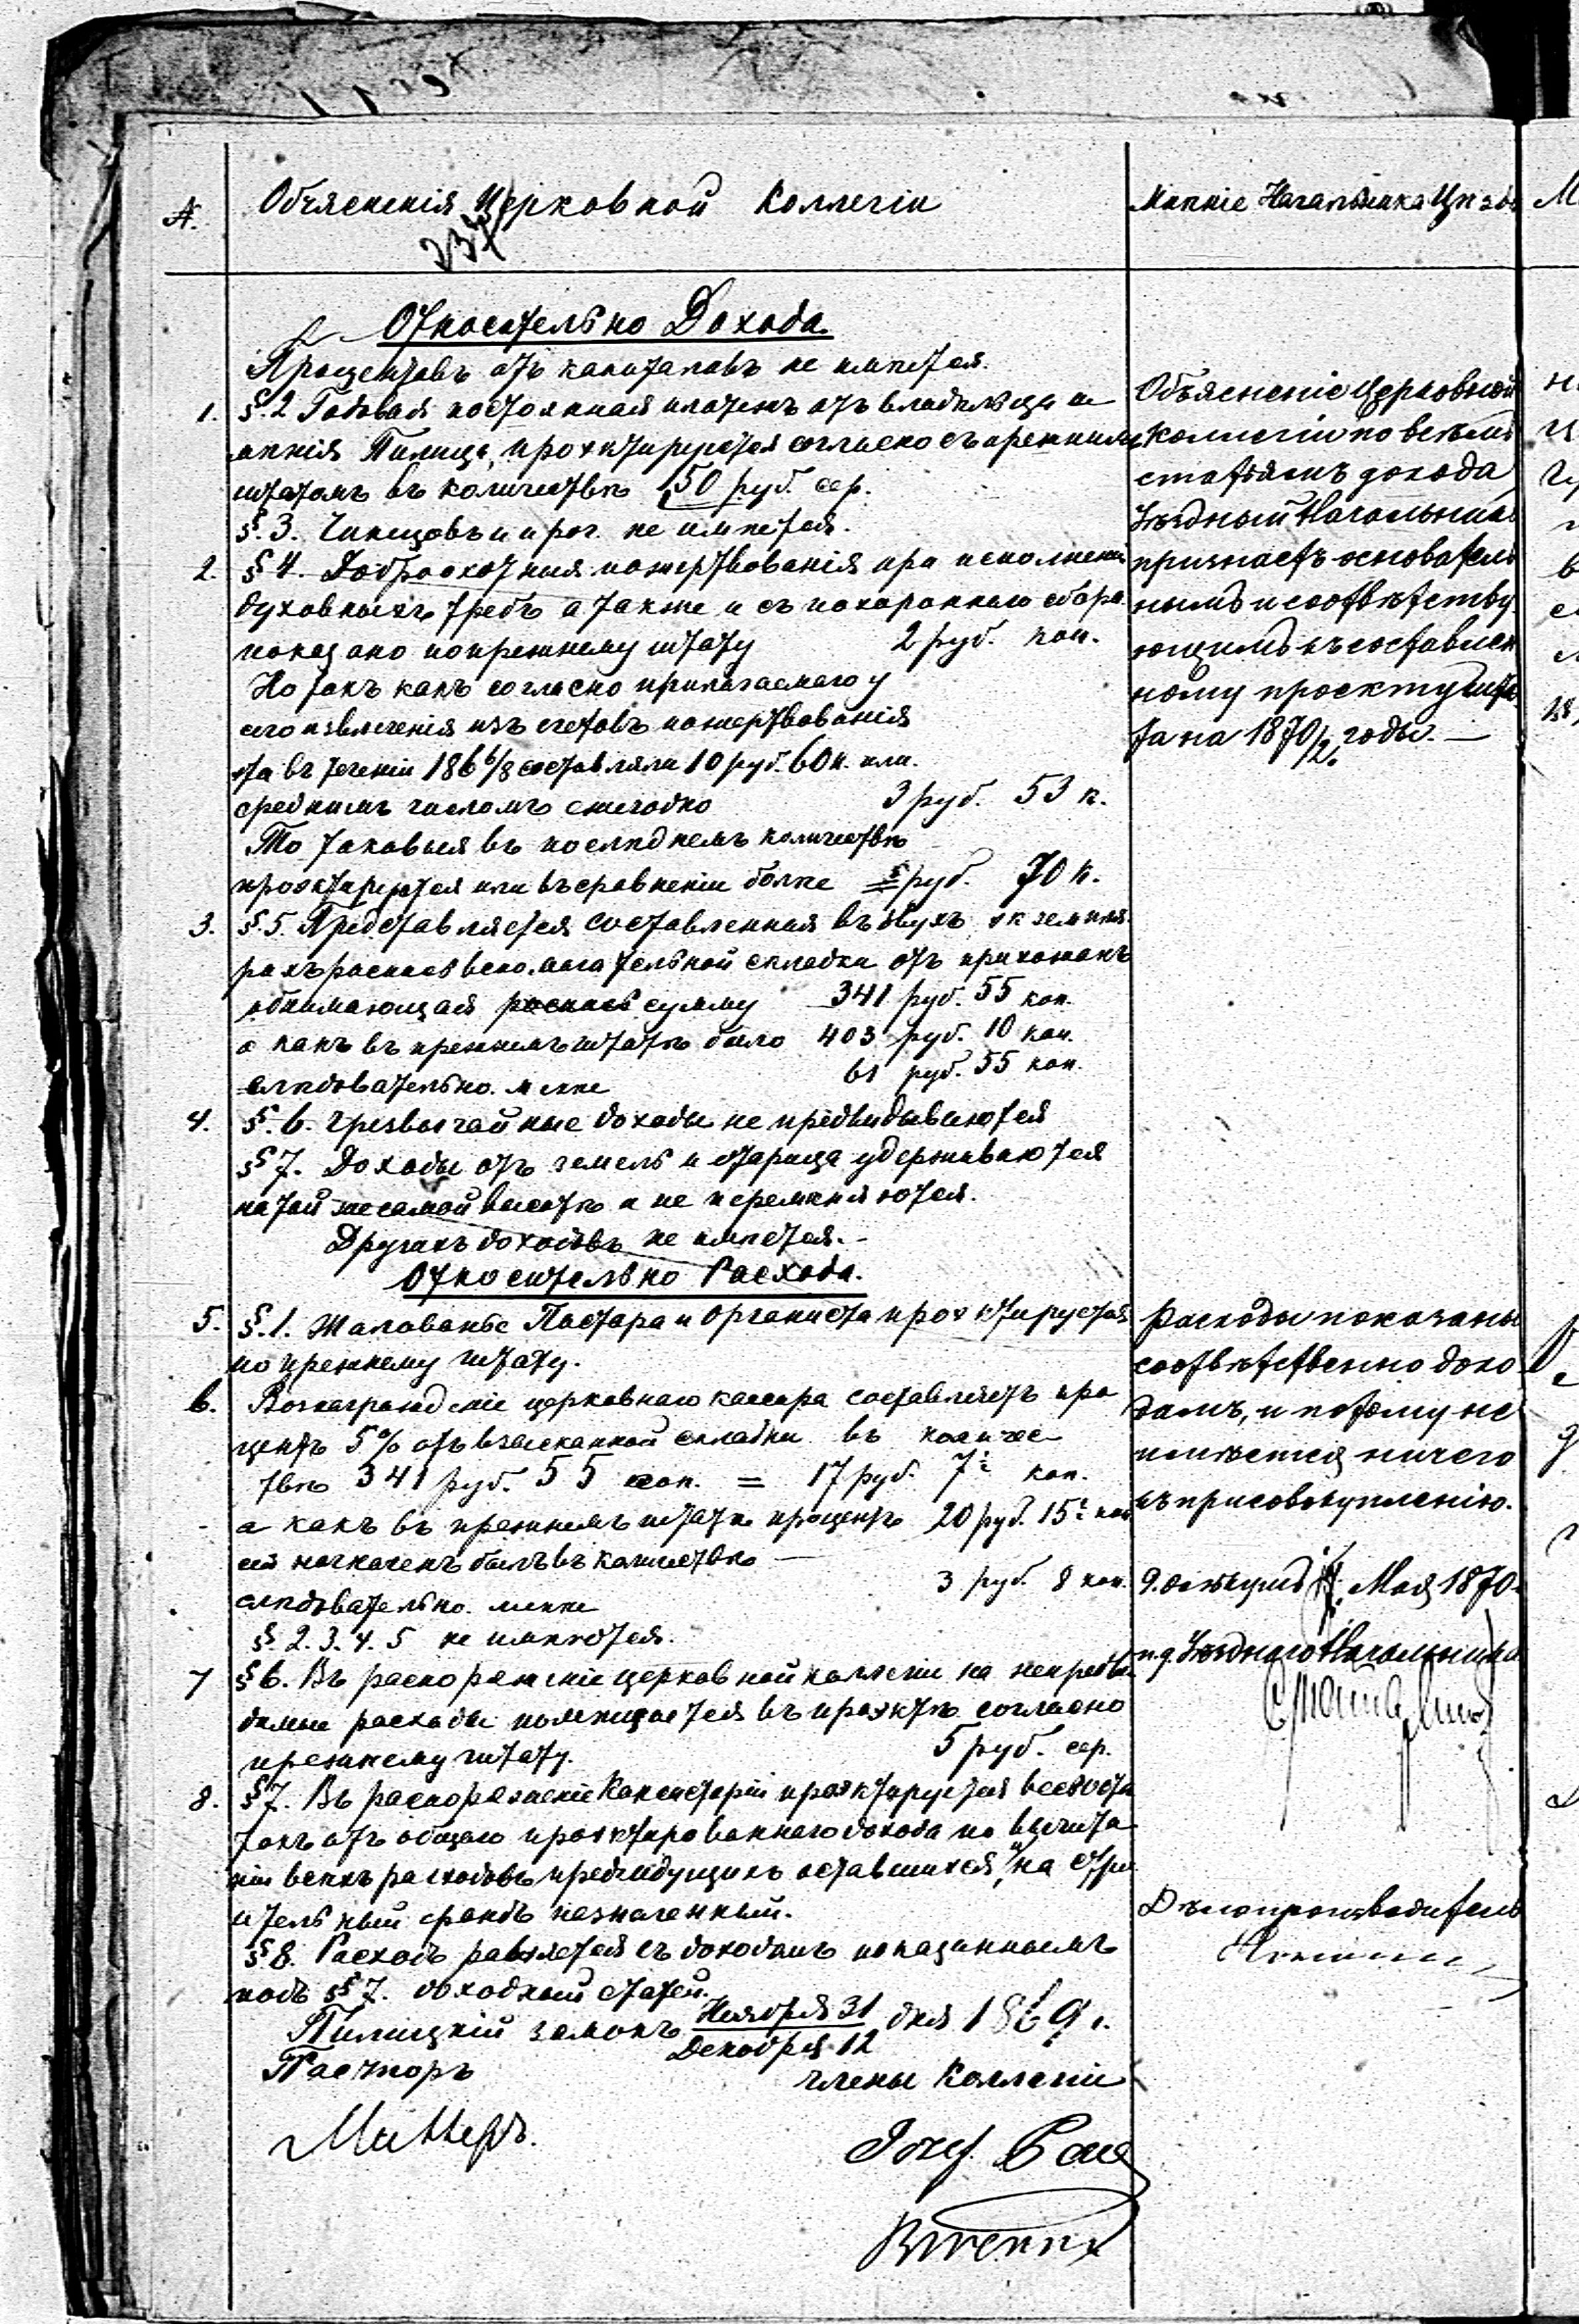 №.
Объясненія Церковной Коллегіи
Мнѣніе Начальника Цп
237
Относительно Дохода.
Процентовъ отъ капиталовъ не имѣется.
1. §.2 Годовая постоянная платежъ отъ владѣльца и
мѣнія Пилица, проэктируется согласно съ прежнимъ
штатомъ въ количествѣ 150 руб. сер.
§.3. Чиншовъ и проч. не имѣется.
2. §4. Доброохотныя пожертвованія при исполненіи
духовныхъ требъ а также и съ похороннаго сбора
показано по прежнему штату 2 руб. коп.
Но такъ какъ согласно прилагаемаго у
сего извлеченія изъ счетовъ пожертвованія
та въ теченіи 186 6/8 составляли 10 руб. 60 к. или
среднимъ числомъ ежегодно 3 руб. 53 к.
То таковыя въ послѣднемъ количествѣ
проэктируются или въ сравненіи болѣе = руб. 70 к.
3. §.5. Представляется составленная въ двухъ экземпля
рахъ роспись вспомогательной складки отъ прихожанъ
обнимающая сумму 341 руб. 55 коп.
а какъ въ прежнемъ штатѣ было 403 руб. 10 коп.
слѣдовательно. менѣе 61 руб. 55 коп.
4. §.6. Чрезвычайные доходы не предвидываются
§7. Доходы отъ земель и удерживаются
на той же самой высотѣ и не перемѣняются.
Другихъ доходовъ не имѣется.
Относительно Расхода.
5. §.1. Жалованье Пастора и Органиста проэктируется
по прежнему штату.
6. Вознагражденіе церковнаго кассира составляетъ про
центъ 5% отъ взысканной складки въ количес
твѣ 341 руб. 55 коп. = 17 руб. 7 коп.
а какъ въ прежнемъ штатѣ процентъ 20 руб. 15 коп
сей назначенъ былъ въ количествѣ
слѣдовательно. менѣе 3 руб. 8 коп.
§. 2. 3. 4. 5 не имѣются.
7 §6. Въ распоряженіе церковной коллегіи на непредви
димые расходы помѣщается въ проэктѣ согласно
прежнему штату. 5 руб. сер.
8. §7. Въ распоряженіе Консисторіи проэктируется весь оста
токъ отъ общаго проэктированнаго дохода по вычита
ніи всѣхъ расходовъ предъидущихъ оставшихся, на стро
ительный фондъ назначенный.
§8. Расходъ равняется съ доходомъ показаннымъ
подъ §§7. доходной статьей.
Пилицкій замокъ Ноября 31 / Декабря 12 дня 1869 г.
Пасторъ
Члены Коллегіи
Миллеръ.
Jozef
Объясненіе Церковной
Коллегіи по всѣмъ
статьямъ дохода
Уѣздный Начальникъ
признаетъ основатель
нымъ и соотвѣтству
ющимъ къ составлен
ному проекту шта
та на 1870/2. годы.
Расходы показаны
соотвѣтственно дохо
дамъ, и потому не
имѣется ничего
къ присовокупленію.
Мая 1870.
и.д. Уѣзднаго Начальника
Дѣлопроизводитель